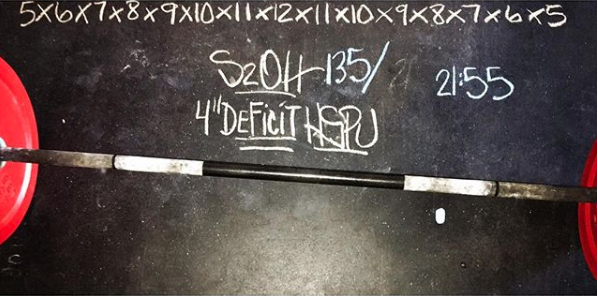 5x6x7x8x9x10x11x12x11x10x9x8x7x6x5
S2OH 135/ 21:55
4" DEFICIT HSPU